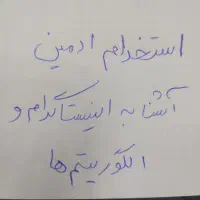 استخدام ادمین
آشنا به اینستاگرام و
الگوریتم ها